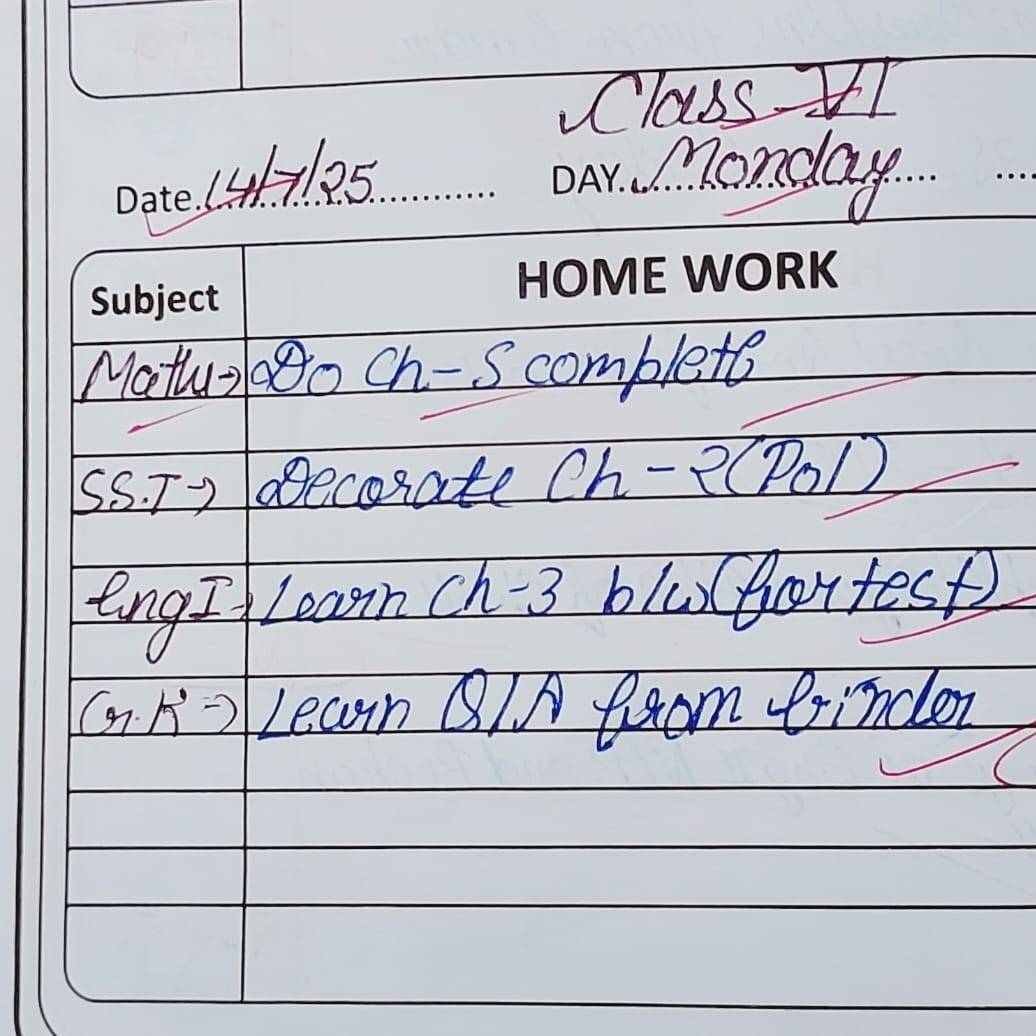 Class-VI
Date. 14/7/25 DAY. Monday
Subject HOME WORK
Maths→ Do Ch-5 complete
SS.T→ Decorate Ch-2 (Pol)
EngI→ Learn Ch-3 b/w (for test)
G.K→ Learn Q/A from binder